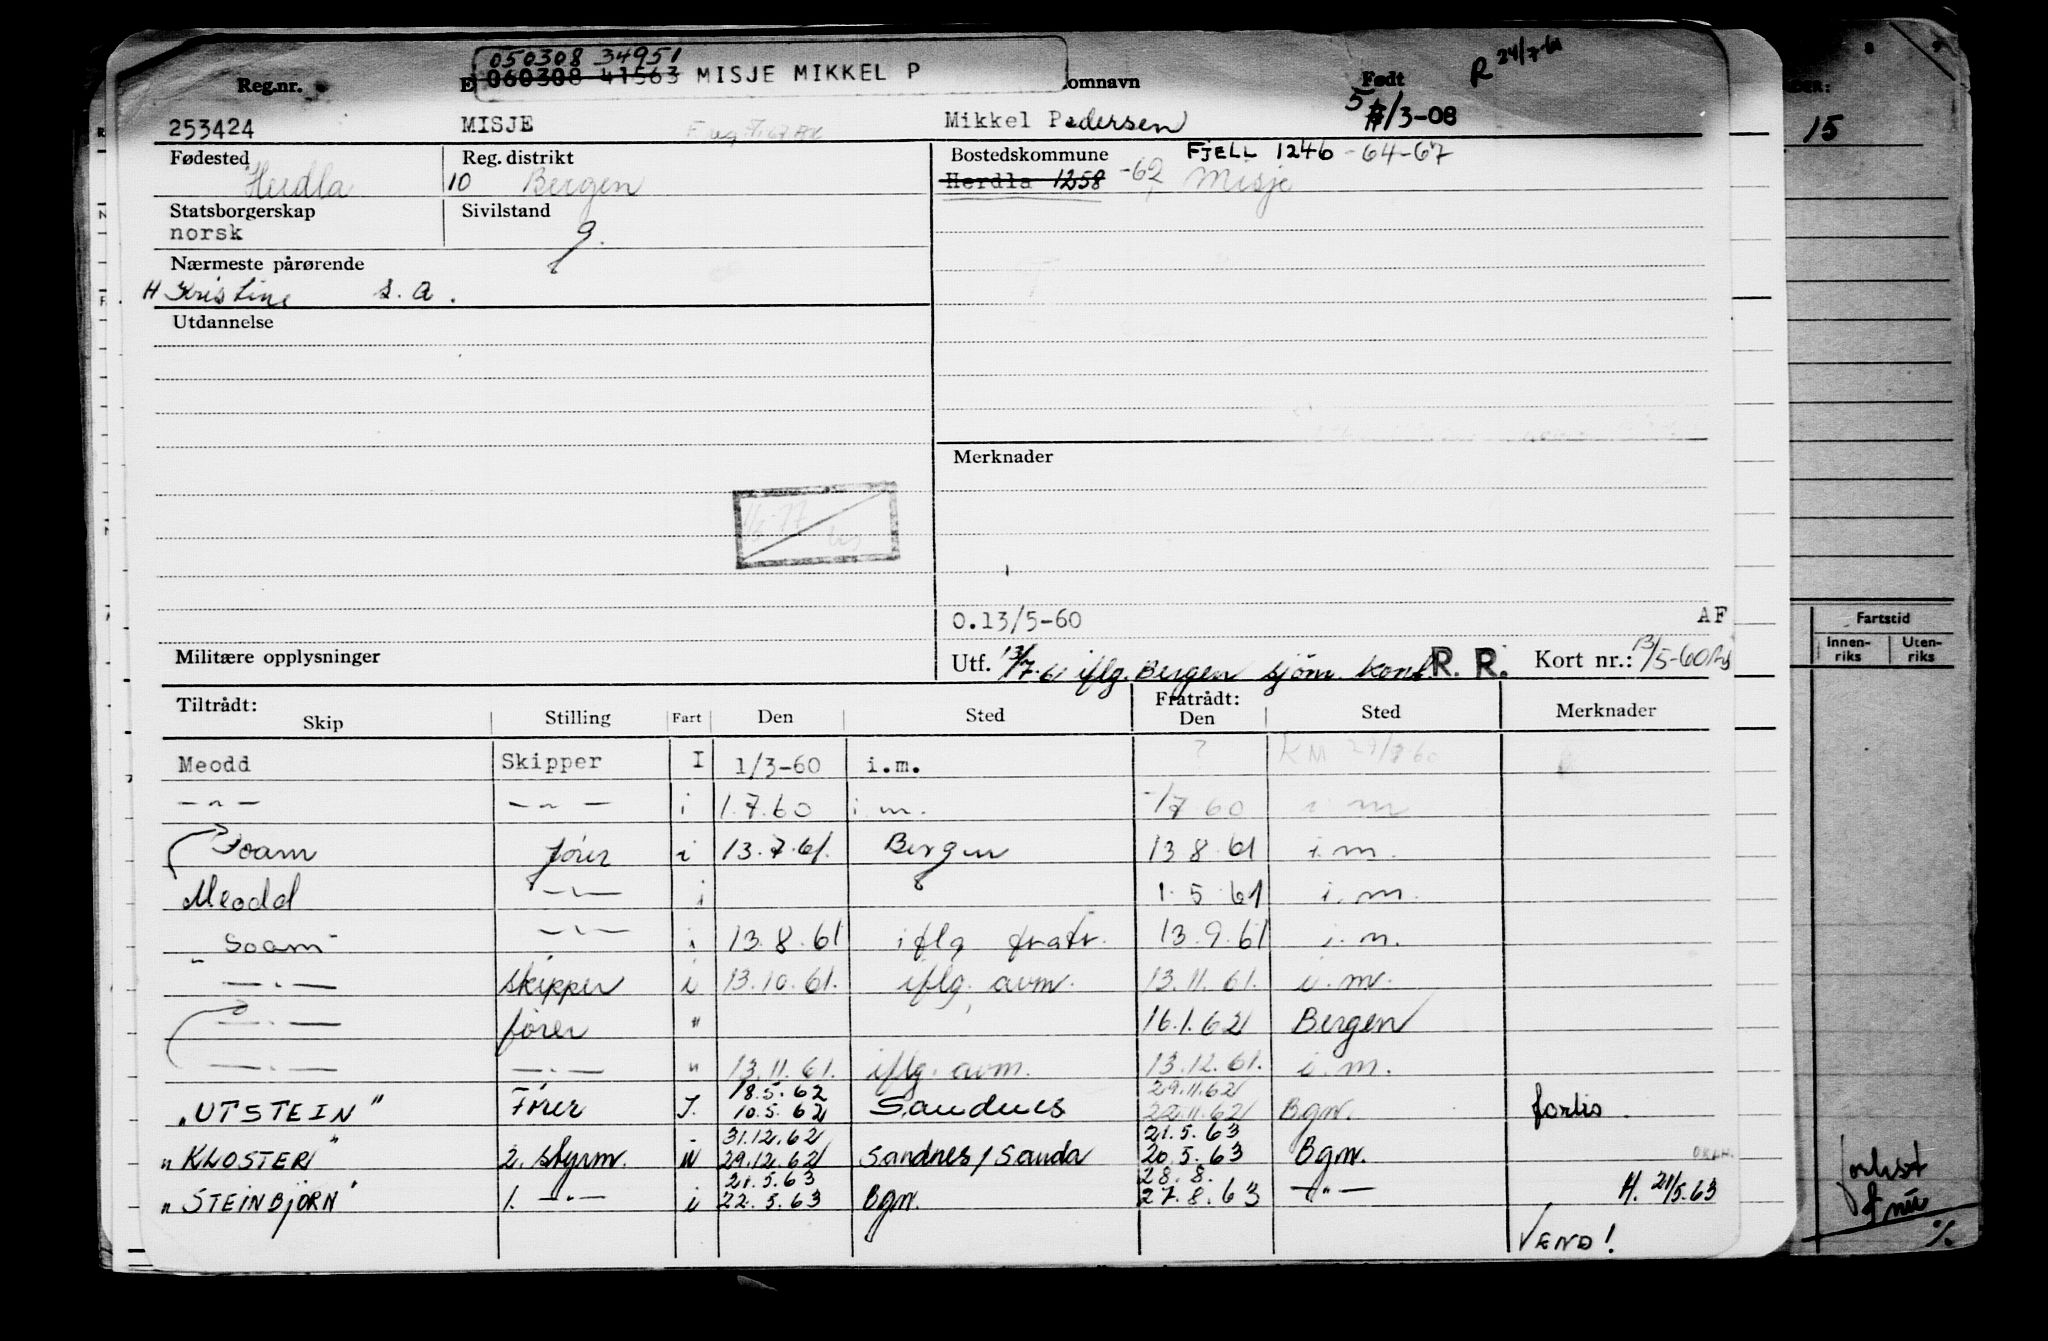 050308 34951
060308 41563 MISJE MIKKEL P
R 24/7-61
Reg.nr. E omnavn Født
253424 MISJE Mikkel Pedersen 5/3-08
15
Fødested Reg. distrikt Bostedskommune FJELL 1246 -64-67
Herdla 10 Bergen Herdla 1258 -62 Misje
Statsborgerskap Sivilstand
norsk g.
Nærmeste pårørende
H Kristine s. a.
Utdannelse
Merknader
O.13/5-60 AF
Fartstid
Innen-riks Uten-riks
Militære opplysninger Utf. 13/7-61 iflg. Bergen sjöm. kont. R. R. Kort nr.: 13/5-60
Tiltrådt: Fratrådt:
Skip Stilling Fart Den Sted Den Sted Merknader
Meodd Skipper I 1/3-60 i.m. ? KM
— " — — " — i 1.7.60 i m. 1/7 60 i m
Soam fører i 13.7.61. Bergen 13 8 61 i.m.
Meodd — " — i 1. 5 61 i. m.
" Soam " — " — i 13. 8. 61 iflg fratr. 13. 9. 61 i. m.
— " — skipper i 13.10.61. iflg. avm. 13.11.61. i.m.
— " — fører " 16.1.62 Bergen
— " — — " — " 13.11.61. iflg. avm. 13.12.61. i.m.
18.5.62 29.11.62
"UTSTEIN" Fører I. 10.5.62 Sandnes 22.11.62 Bgn. forlis.
31.12.62 21.5.63
"KLOSTER" 2. styrm. i 29.12.62 Sandnes/Sauda 20.5.63 Bgn.
21.5.63 28.8.
"STEINBJØRN" 1. — " — i 22.5.63 Bgn. 27.8.63 — " — H. 21/5.63
VEND!